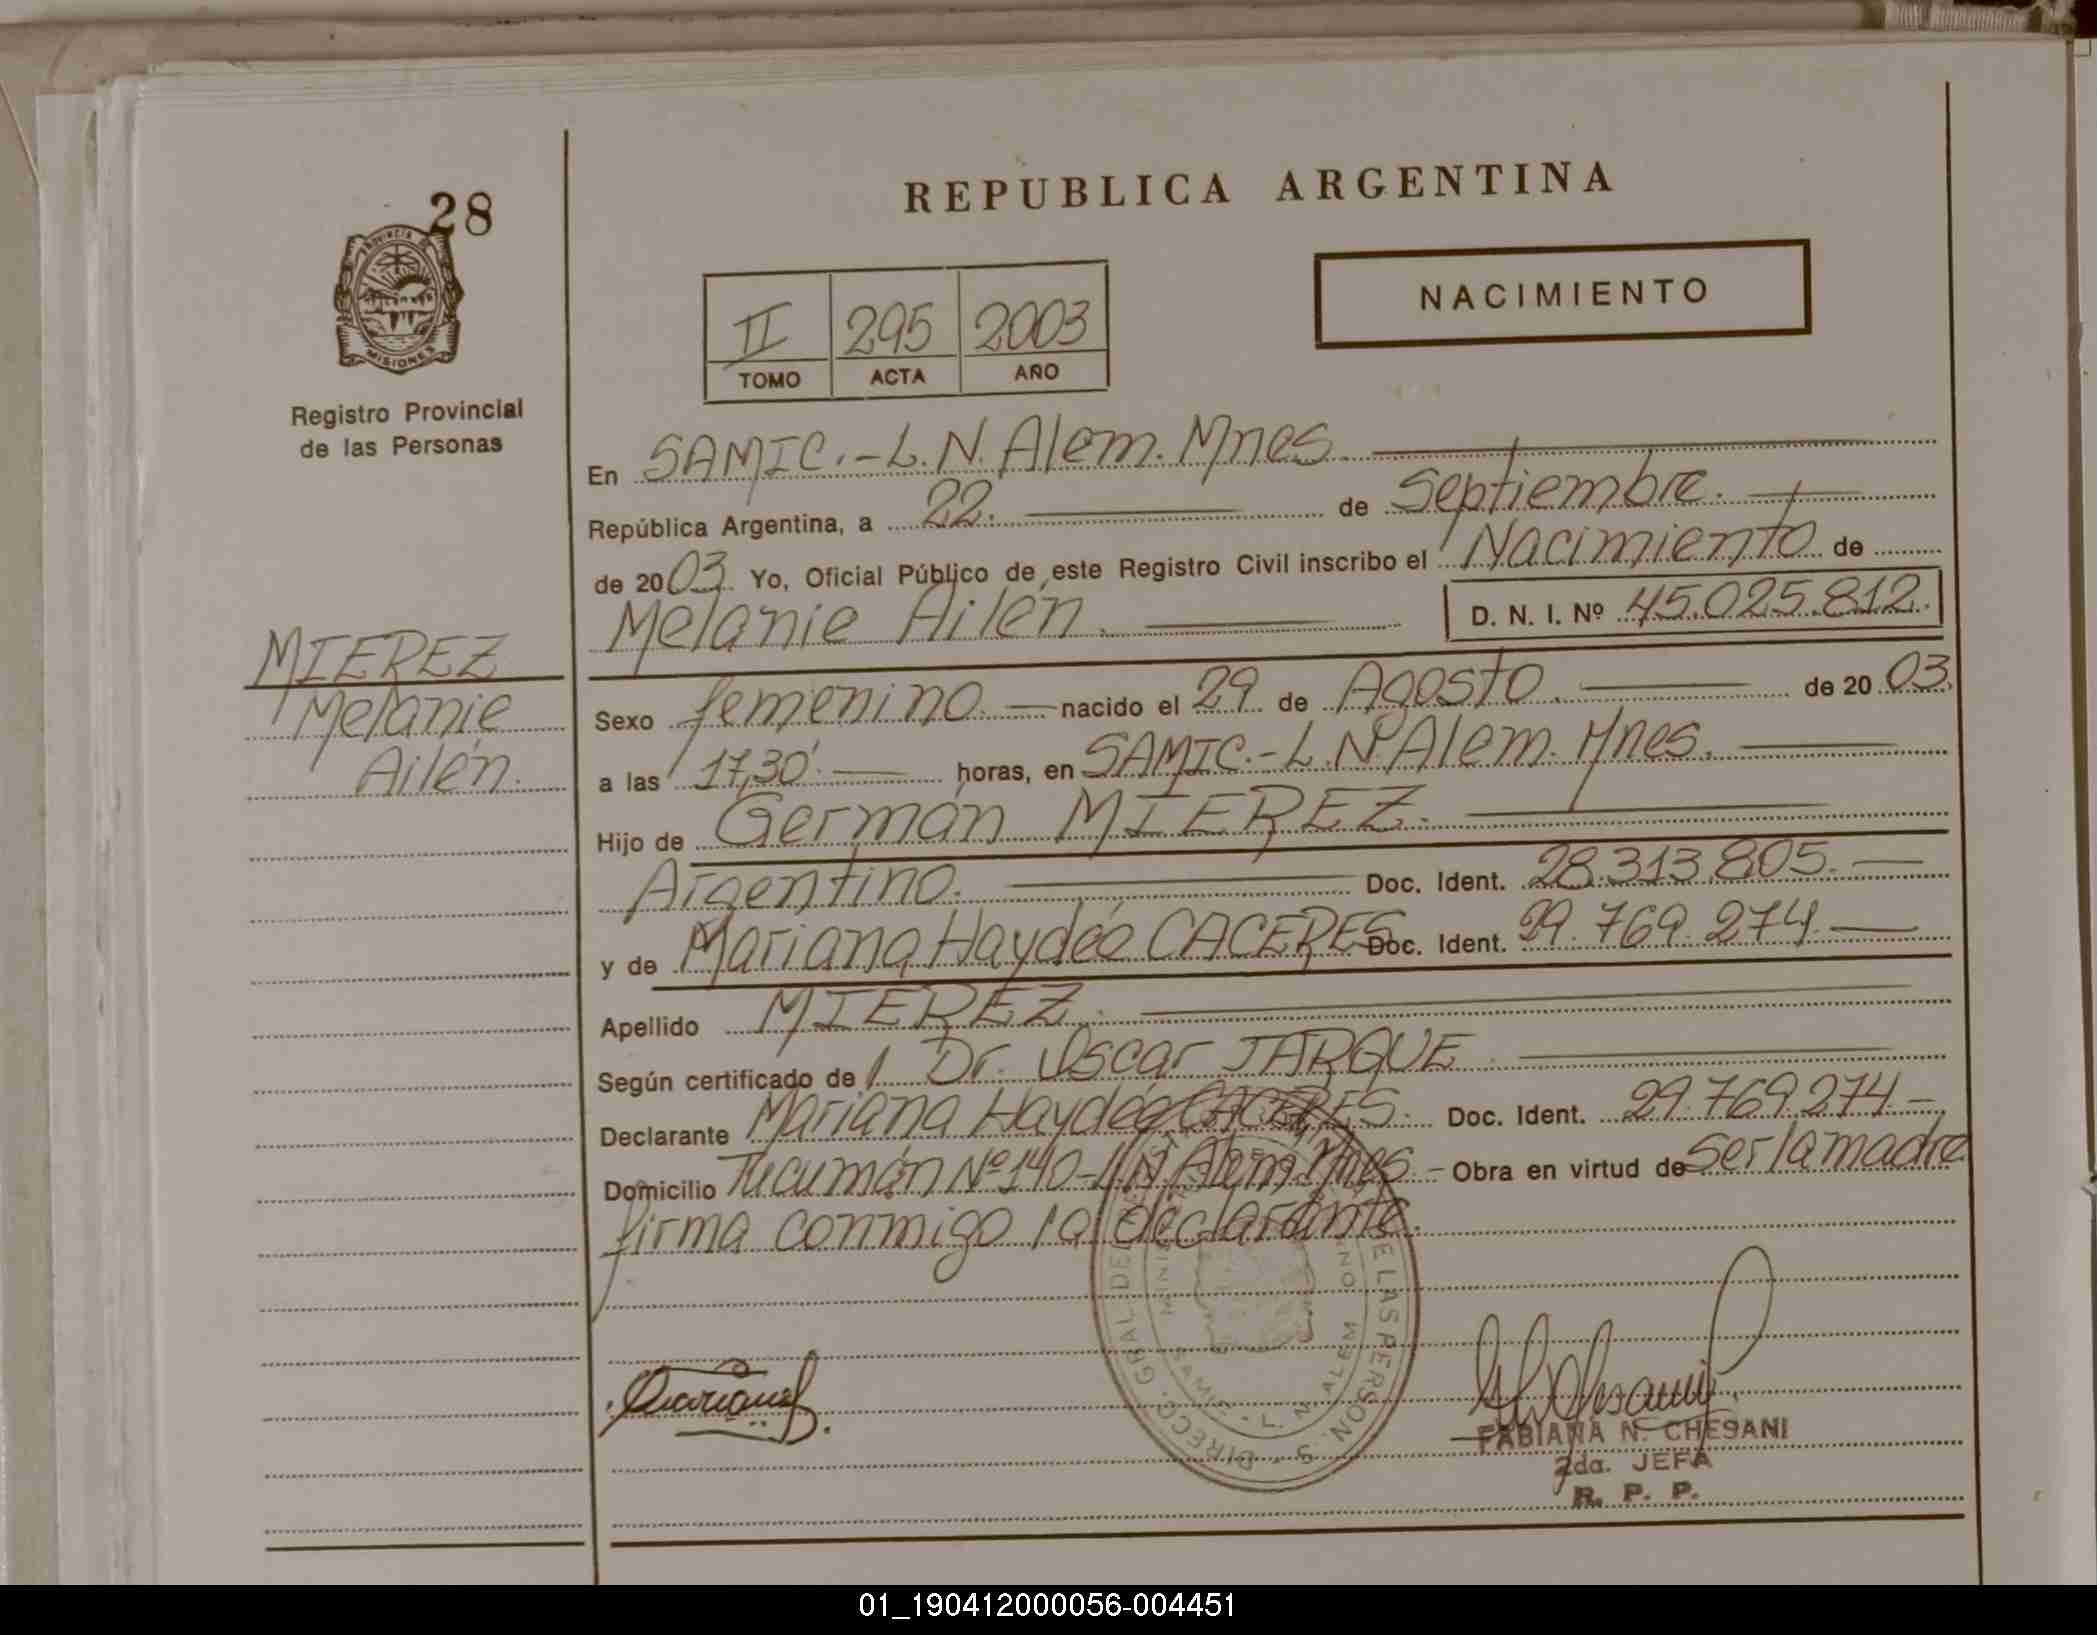 28
PROVINCIA DE
MISIONES
Registro Provincial
de las Personas
MIEREZ
Melanie
Ailén.
REPUBLICA ARGENTINA
NACIMIENTO
II 295 2003
TOMO ACTA AÑO
En SAMIC.-L.N.Alem.Mnes.
República Argentina, a 22. de Septiembre.
de 2003. Yo, Oficial Público de este Registro Civil inscribo el Nacimiento de
Melanie Ailén. D. N. I. Nº 45.025.812.
Sexo femenino. nacido el 29 de Agosto. de 2003.
a las 17,30'. horas, en SAMIC.-L.N.Alem.Mnes.
Hijo de Germán MIEREZ.
Argentino. Doc. Ident. 28.313.805.
y de Mariana Haydée CACERES Doc. Ident. 29.769.274.
Apellido MIEREZ.
Según certificado de Dr. Oscar JARQUE.
Declarante Mariana Haydée CACERES. Doc. Ident. 29.769.274.-
Domicilio Tucumán Nº140-L.N.Alem.Mnes.- Obra en virtud de ser la madre
firma conmigo la declarante.
DIRECC. GRAL. DE LAS PERSON S
SAMIC - L. N. ALEM
FABIANA N. CHESANI
2da. JEFA
R. P. P.
01_190412000056-004451